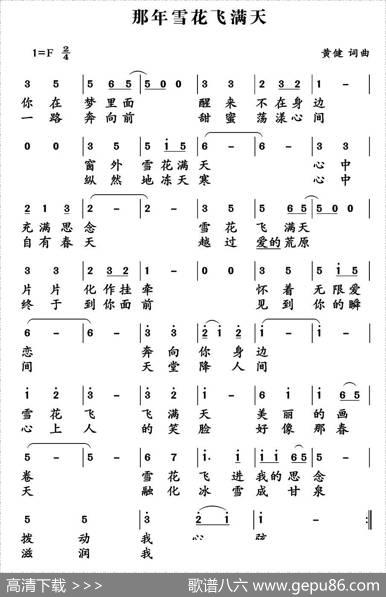 那年雪花飞满天
1=F 2/4
黄健 词曲
3 5 | 5 6 5 | 5 0 0 | 3 3 | 2 3 2 | 1 - |
你 在 梦里面 醒 来 不在身 边
一 路 奔向前 甜 蜜 荡漾心 间
0 0 | 3 5 | 5 1 5 | 6 - | 6 - | 3 5 |
窗 外 雪花满 天 心 中
纵 然 地冻天 寒 心 中
2 1 3 | 2 - | 2 - | 3 5 | 5 6 5 | 5 0 0 |
充满思 念 雪 花 飞 满天
自有春 天 越 过 爱的荒原
3 3 | 2 3 2 | 1 - | 0 0 | 3 5 | 5 1 5 |
片 片 化作挂 牵 怀 着 无限爱
终 于 到你面 前 见 到 你的瞬
6 - | 6 - | 3 3 | 2 1 2 | 6 - | 6 - |
恋 奔 向 你 身 边
间 天 堂 降 人 间
1 2 | 3 - | 2 3 | 6 - | 1 2 | 1 6 5 |
雪 花 飞 飞 满 天 美 丽 的 画
心 上 人 的 笑 脸 好 像 那 春
5 - | 5 - | 6 7 | 1. 1 | 1 1 6 5 | 5 - |
卷 雪 花 飞 进 我的思 念
天 融 化 冰 雪 成 甘 泉
5 5 | 3 - | 2 1 | 1 - :||
拨 动 我 心 弦
滋 润 我
高清下载 >>>
歌谱八六 www.gepu86.com